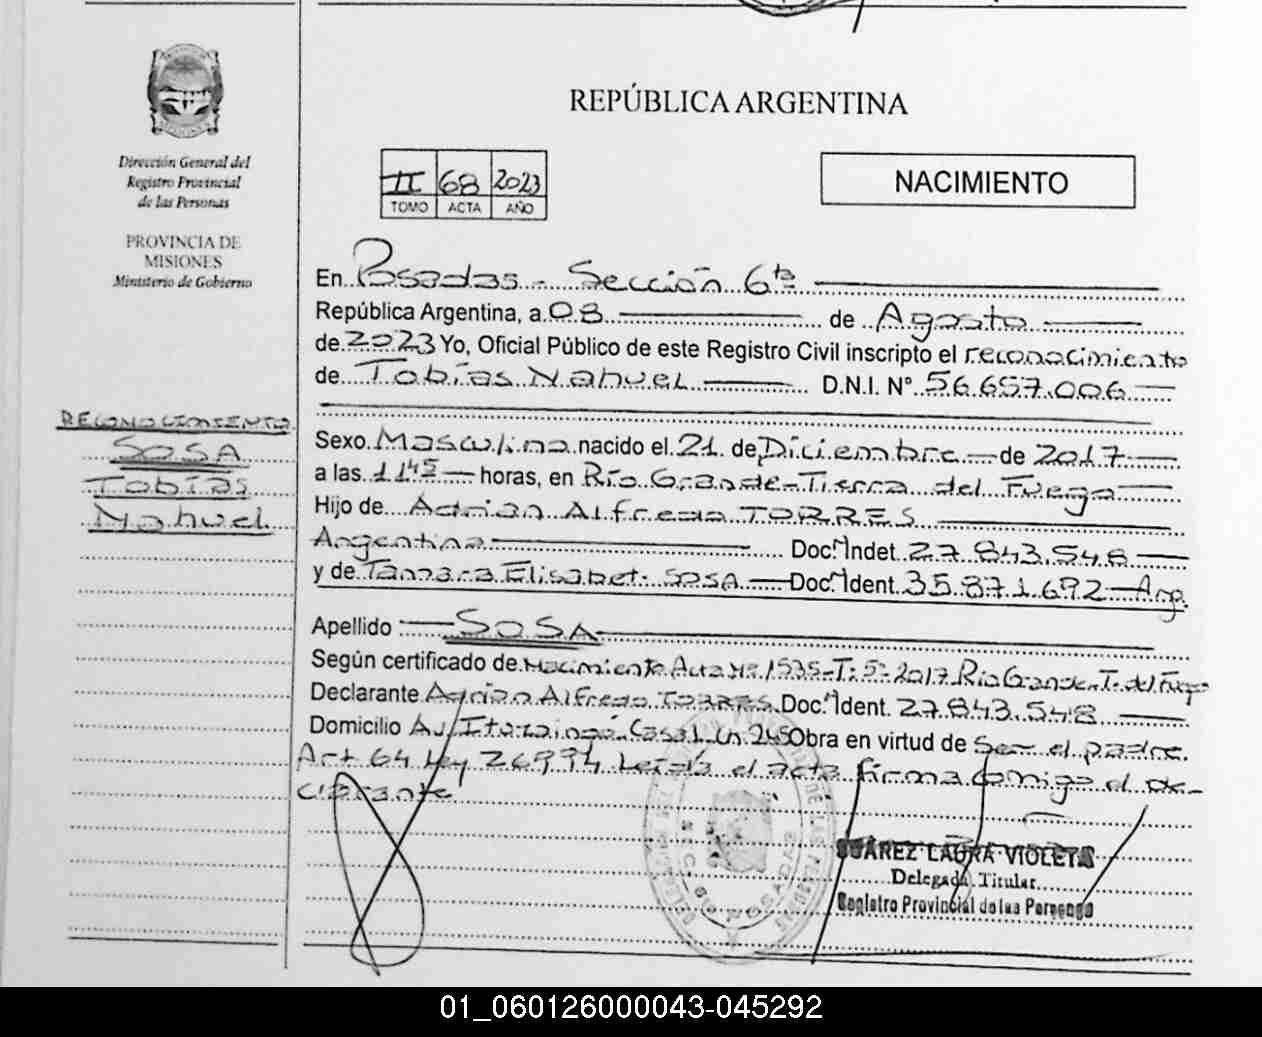 REPÚBLICA ARGENTINA
Dirección General del
Registro Provincial
de las Personas
PROVINCIA DE
MISIONES
Ministerio de Gobierno
II 68 2023
TOMO ACTA AÑO
NACIMIENTO
En Posadas - Sección 6ta
República Argentina, a 08 de Agosto
de 2023 Yo, Oficial Público de este Registro Civil inscripto el reconocimiento
de Tobías Nahuel D.N.I. N° 56.657.006
RECONOCIMIENTO
SOSA
Tobías
Nahuel
Sexo Masculino nacido el 21 de Diciembre de 2017
a las 1145 horas, en Río Grande - Tierra del Fuego
Hijo de Adrian Alfredo TORRES
Argentina Doc. Indet. 27.843.548
y de Tamara Elisabet SOSA Doc. Ident. 35.871.692 - Arg.
Apellido : SOSA
Según certificado de Nacimiento Acta Nº 1535-T: 5º 2017 Río Grande - T. del Fuego
Declarante Adrian Alfredo TORRES Doc. Ident. 27.843.548
Domicilio Av. Ituzaingó Casa Obra en virtud de Ser el padre.
Art 64 Ley 26994 Leída el acta firma conmigo el De-
clarante
SUÁREZ LAURA VIOLETA
Delegada Titular
Registro Provincial de las Personas
01_060126000043-045292